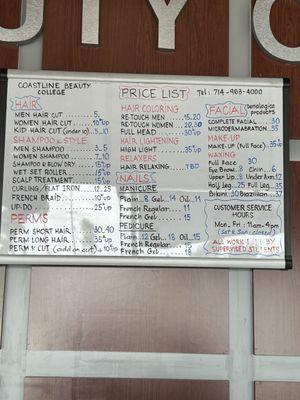 UTY CO
COASTLINE BEAUTY
COLLEGE
HAIR
MEN HAIR CUT ..... 5
WOMEN HAIR CUT ..... 10up
KID HAIR CUT (under 10) ..5-10
SHAMPOO & STYLE
MEN SHAMPOO ..... 3.5
WOMEN SHAMPOO ..... 7.10
SHAMPOO & BLOW DRY ... 15up
WET SET ROLLER ..... 15up
SCALP TREATMENT ..... 15up
CURLING / FLAT IRON ..... 12.25
FRENCH BRAID ..... 10up
UP-DO ..... 25up
PERMS
PERM SHORT HAIR ..... 30.40
PERM LONG HAIR ..... 35up
PERM & CUT (add on cut) + 10up
PRICE LIST
HAIR COLORING
RE-TOUCH MEN ..... 15.20
RE-TOUCH WOMEN ... 20.30
FULL HEAD ..... 30up
HAIR LIGHTENING
HIGH LIGHT ..... 35up
RELAXERS
HAIR RELAXING ..... TBD
NAILS
MANICURE
Plain..8 Gel...14 Oil..11
French Regular ..... 11
French Gel ..... 15
PEDICURE
Plain...12 Gel...18 Oil...15
French Regular ..... 15
French Gel ..... 18
Tel: 714-963-4000
FACIAL
products
COMPLETE FACIAL ... 30
MICRODERMABRASION 35
MAKE-UP
MAKE-UP (Full Face) .... 35
WAXING
Full Face 30
Eye Brow.. 8 Chin.... 6
Upper Lip.. 8 Under Arm 12
Half Leg.. 25 Full Leg.. 35
Bikini 30 Brazilian 37
CUSTOMER SERVICE
HOURS
Mon-Fri: 11am-4pm
(Sat & Sun: closed)
ALL WORK DONE BY
SUPERVISED STUDENTS